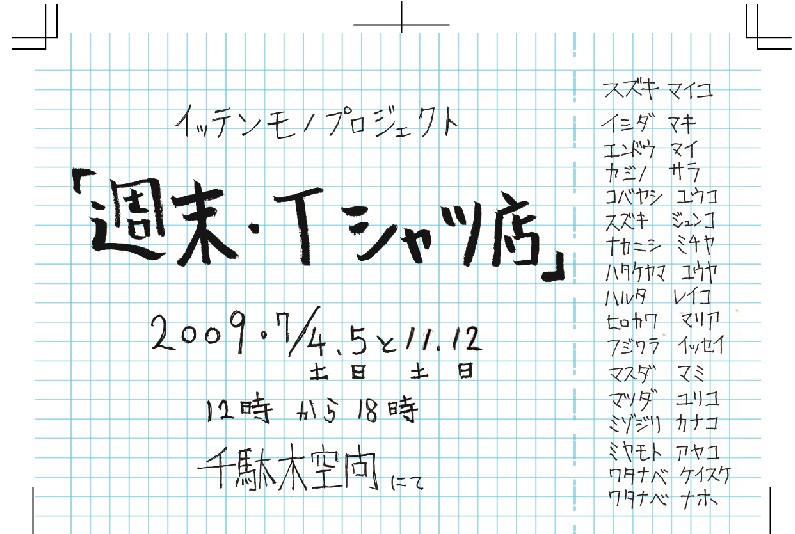 イッテンモノプロジェクト
「週末・Tシャツ店」
2009.7/4.5と11.12
土 日 土 日
12時 から 18時
千駄木空間にて
スズキ マイコ
イシダ マキ
エンドウ マイ
カミノ サラ
コバヤシ ユウコ
スズキ ジュンコ
ナカニシ ミチヤ
ハタケヤマ ユウヤ
ハルタ レイコ
ヒロカワ マリア
フジワラ イッセイ
マスダ マミ
マツダ ユリコ
ミゾジリ カナコ
ミヤモト アヤコ
ワタナベ ケイスケ
ワタナベ ナホ